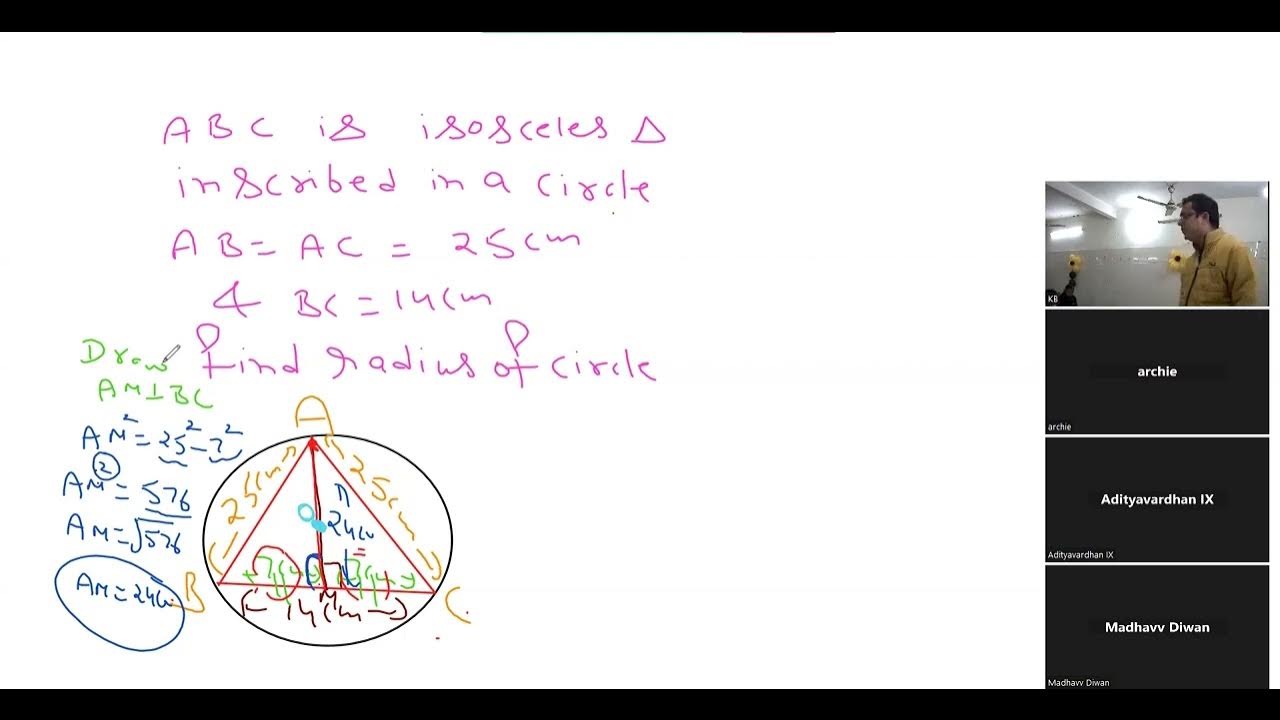 ABC is isosceles Δ
inscribed in a circle
AB = AC = 25cm
& BC = 14cm
find radius of circle
Draw
AM ⊥ BC
AM² = 25² - 7²
AM² = 576
AM = √576
AM = 24cm
A
25cm
25cm
O
24cm
B
M
C
14cm
KB
archie
archie
Adityavardhan IX
Adityavardhan IX
Madhavv Diwan
Madhavv Diwan